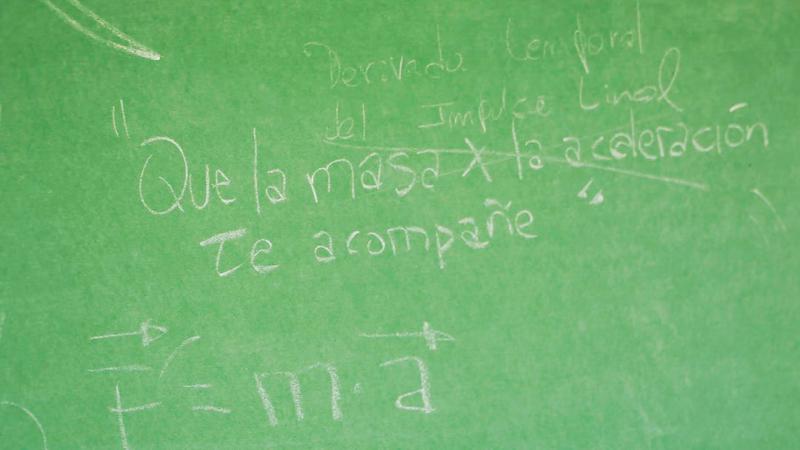 Derivada temporal
del Impulso Lineal
"Que la masa x la aceleración
Te acompañe"
F = m · a